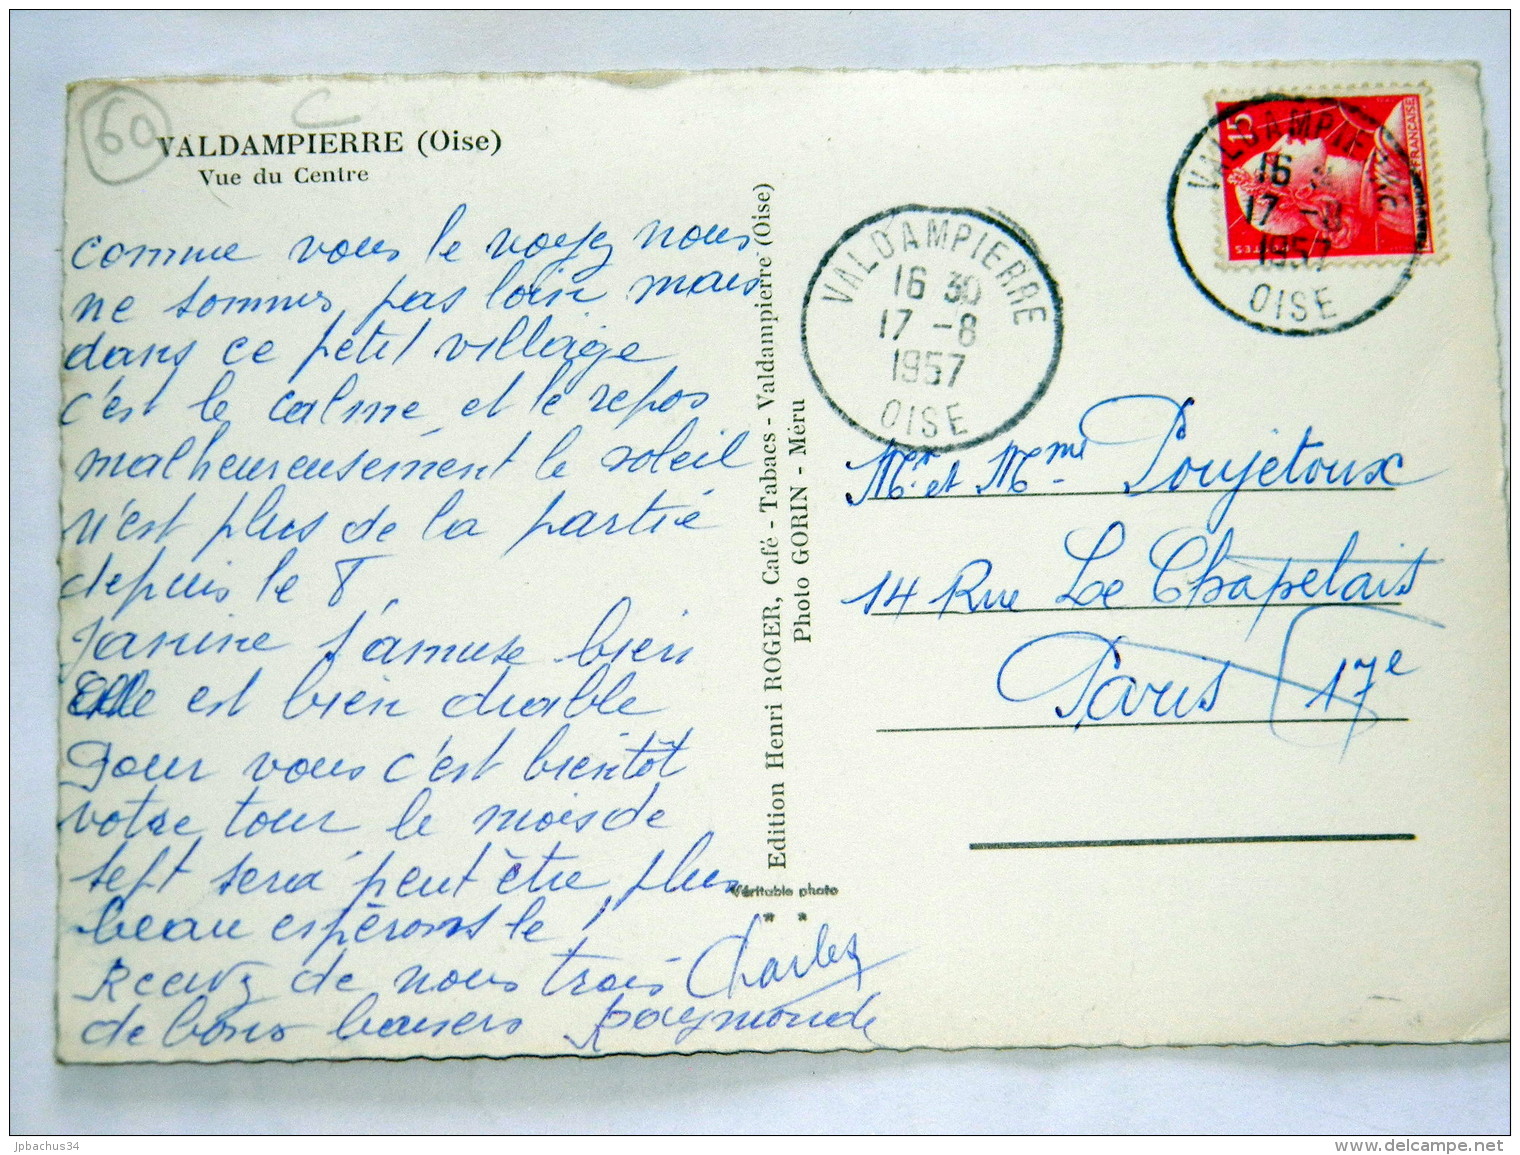 60
C
VALDAMPIERRE (Oise)
Vue du Centre
comme vous le voyez nous
ne sommes pas loin mais
dans ce petit village
c'est le calme et le repos
malheureusement le soleil
n'est plus de la partie
depuis le 8
Janine s'amuse bien
Elle est bien diable
Pour vous c'est bientôt
votre tour le mois de
sept sera peut être plus
beau espèrons le !
Recevez de nous trois
de bons baisers
Charles
Raymonde
Edition Henri ROGER, Café - Tabacs - Valdampierre (Oise)
Photo GORIN - Méru
Véritable photo
VALDAMPIERRE
16 30
17 -8
1957
OISE
15
FRANÇAISE
VALDAMPIERRE
16
17 -8
1957
OISE
Mr et Mme Poujetoux
14 Rue Le Chapelais
Paris 17e
jpbachus34
www.delcampe.net